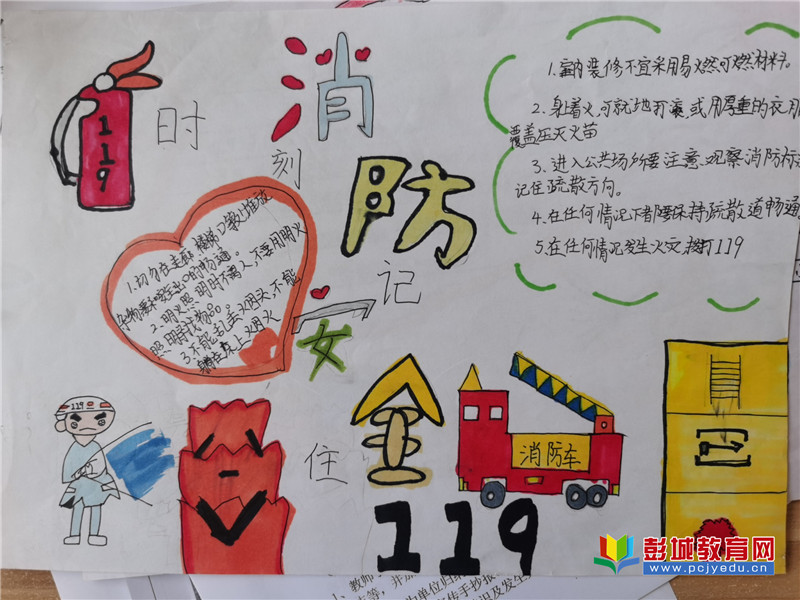 119
时
消
刻
防
记
安
住
全
119
1.室内装修不宜采用易燃可燃材料。
2.身上着火,可就地打滚或用厚重的衣用
覆盖压灭火苗
3.进入公共场所要注意观察消防标
记住疏散方向。
4.在任何情况下都要保持疏散道畅通
5.在任何情况发生火灾,拨打119
1.切勿在走廊、楼梯口
杂物要和安全出口的畅通。
2.明火照明时不离人,不要用明火
照明寻找物品。
3.不能乱丢烟头,不能
躺在床上火烟火
119
消防车
彭城教育网
www.pcjyedu.cn